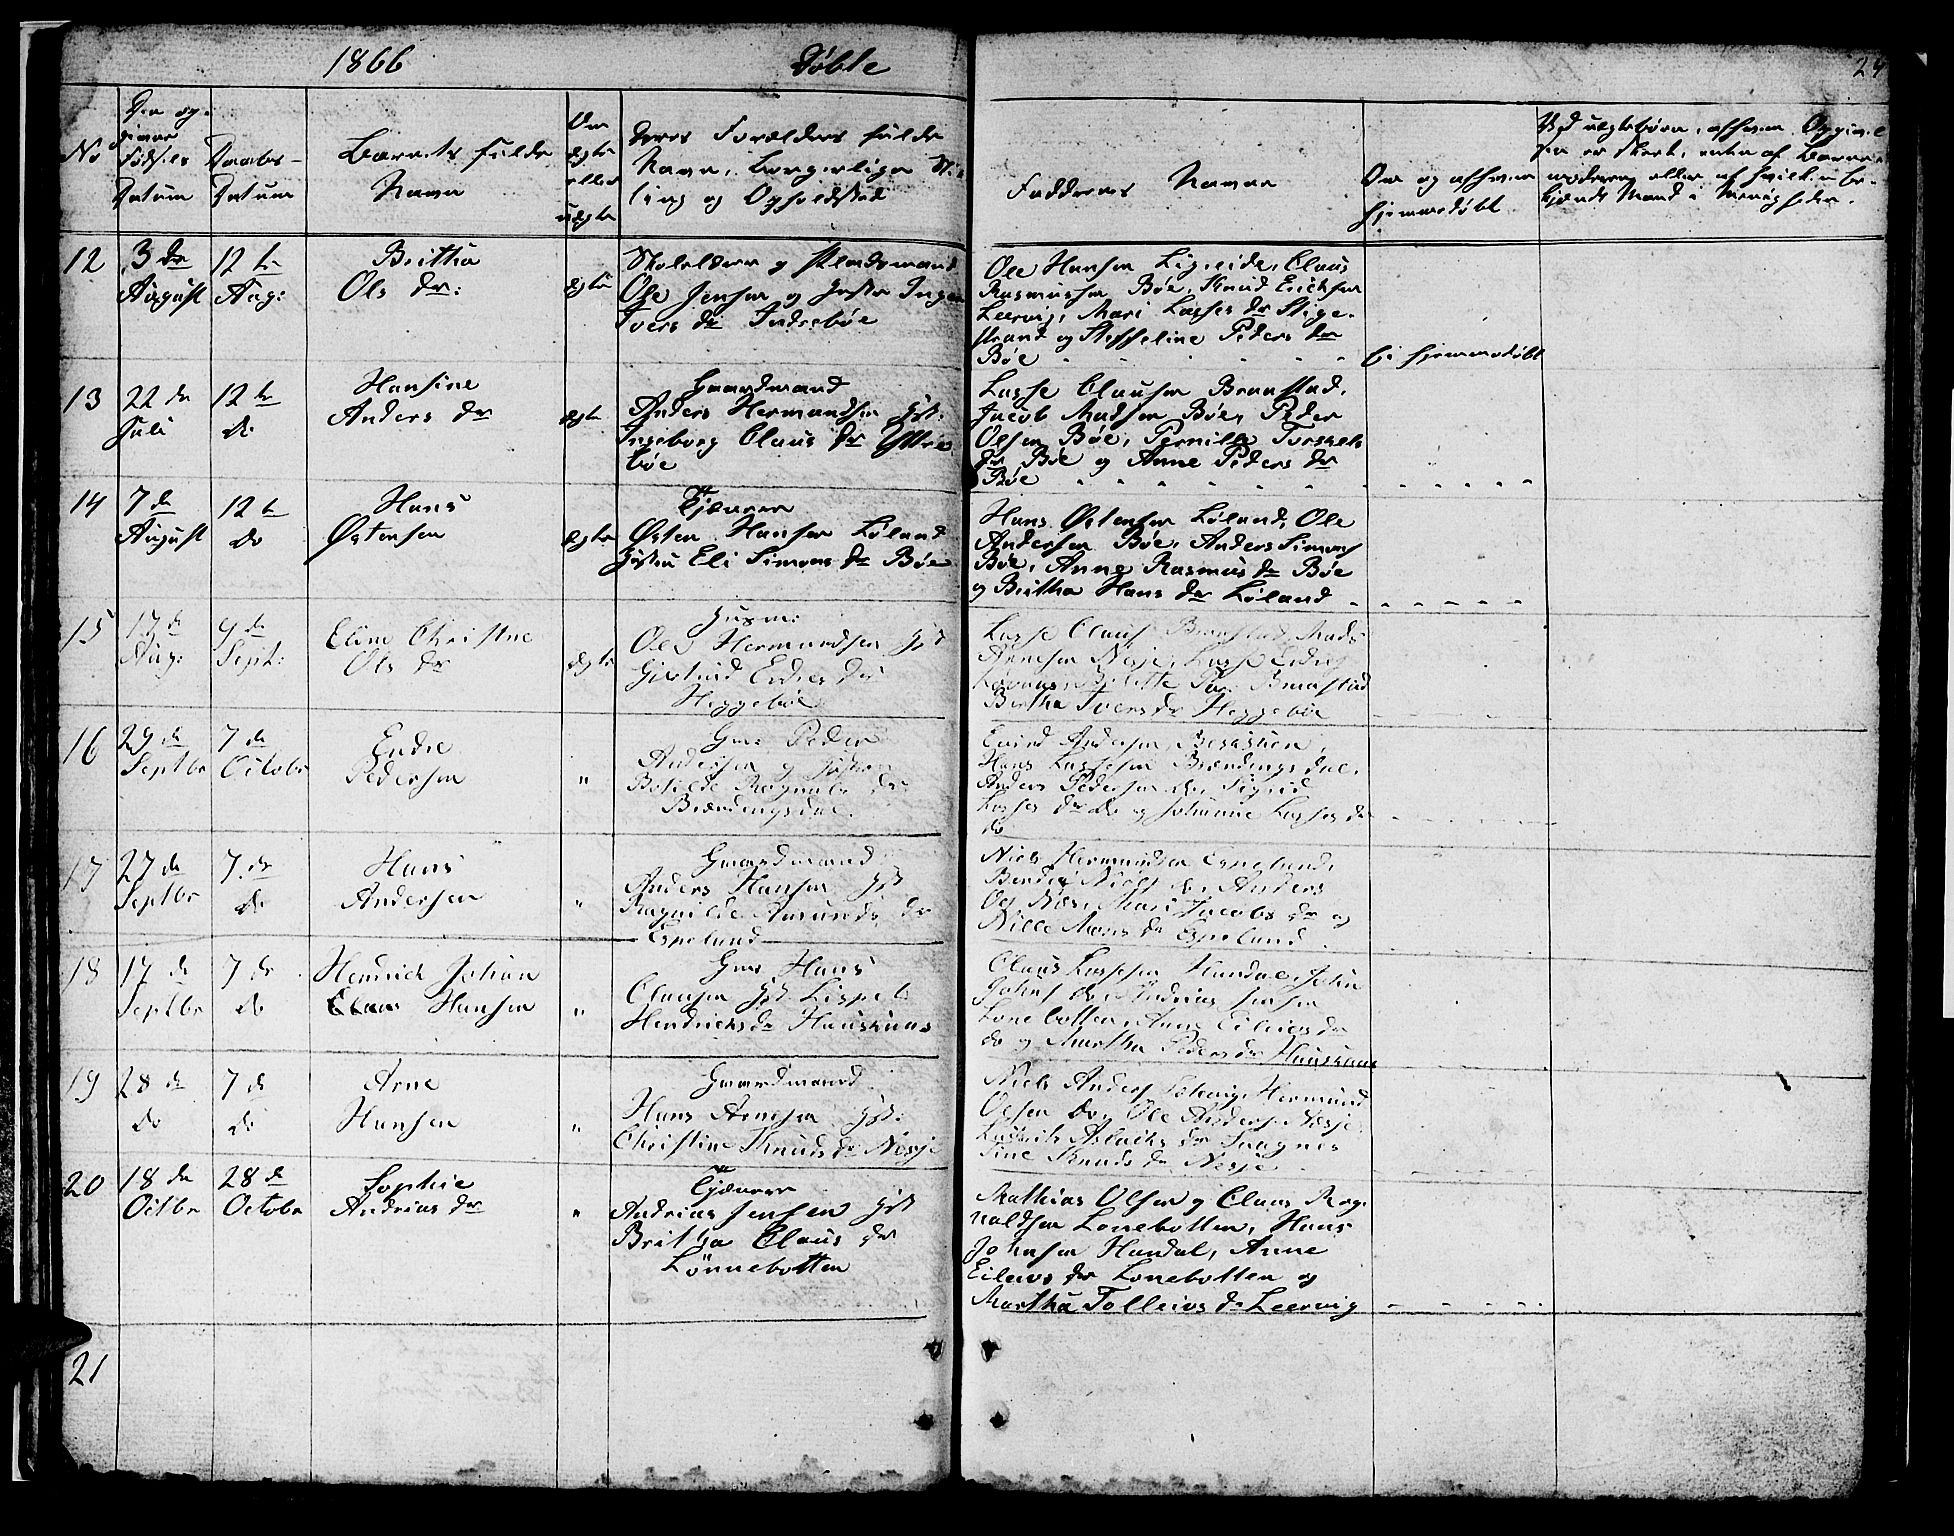 1866 Døbte
24
No
Dag og
Fødsels
Datum
Daabs-
Datum
Barnets fulde
Navn
Om
ægte
eller
uægte
Deres Forældres fulde
Navn, borgerlige St:
ling og Opholdsted
Faddernes Navne
Om og af hvem
hjemmedøbt
Ved uægte børn, af hvem Opgivel
sen er skeet, enten af Barne
moderen eller af hvilken be-
kjendt Mand i Menigheden.
12
3 de
August
12 te
Aug:
Brithe
Ols dr:
ægte
Skolelærer og Pladsmand
Ole Jensen og Hustru Inger
Ivers dr Indrebøe
Ole Hansen Ligreide, Claus
Rasmussen Bøe, Knud Erichsen
Leervig, Mari Lasses dr Stige-
strand og Steffeline Peders dr
Bøe
hjemmedøbt
13
22 de
Juli
12 te
do
Hansine
Anders dr
ægte
Gaardmand
Anders Hermandsen Hst:
Ingeborg Claus dr Yttre
bøe
Lasse Clausen Branstad,
Jacob Madsen Bøe, Peder
Olsen Bøe, Pernille Torkels
dr Bøe og Anne Peders dr
Bøe
14
7 de
August
12 te
do
Hans
Østensen
ægte
Tjenere
Østen Hansen Løland
Hustru Eli Simons dr Bøe
Hans Østensen Løland, Ole
Andersen Bøe, Anders Simons
Bøe, Anne Rasmus dr Bøe
og Brithe Hans dr Løland
15
17 de
Aug:
9 de
Sept:
Eline Christine
Ols dr
ægte
Husm:
Ole Hermundsen Hst
Giertrud Endres dr
Heggebøe
Lasse Claus Branstad, Mads
Arnesen Nesje, Lasse Endres
Branstad
Brithe Ivers dr Heggebøe
16
29 de
Septbr
7 de
Octobr
Endre
Pedersen
"
Gm: Peder
Andersen og Hustru
Botilde Ragnals dr
Brændingsdal.
Eivind Andersen
Hans Lassesen Brændingsdal,
Anders Pedersen do, Sigrid
Lasses dr do og Johanne Lasses dr
do
17
27 de
Septbr
7 de
do
Hans
Andersen
"
Gaardmand
Anders Hansen Hst
Ragnilde Amunds dr
Espelund
Niels Hermundsen Espelund,
Bendix Niels do, Anders
Mari Jacobs dr og
Nille Mons dr Espelund
18
17 de
Septbr
7 de
do
Hendrich Johan
Claus Hansen
"
Gm: Hans
Clausen Hst: Lispet
Hendrichs dr
Claus Lassesen Handal, John
Johns do, Andrias Jensen
Lonebotten, Anne Eilevs dr
do og Martha Peders dr
19
28 de
do
7 de
do
Arne
Hansen
"
Gaardmand
Hans Arnesen Hst:
Christine Knuds dr Nesje
Niels Anders Solvig, Hermund
Olsen do, Ole Anders. Nesje,
Aslaks dr
Sine Knuds dr Nesje
20
18 de
Octbr
28 de
Octobr
Sophie
Andrias dr
"
Tjenere
Andrias Jensen Hst
Britha Claus dr
Lønnebotten
Mathias Olsen og Claus Rag
naldsen Lonebotten, Hans
Johnsen Handal, Anne
Eilevs dr Lonebotten og
Martha Tolleivs dr Leervig
21